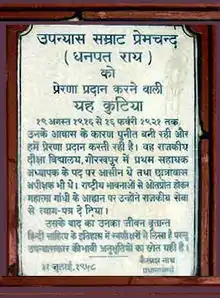 उपन्यास सम्राट प्रेमचन्द
(धनपत राय)
को
प्रेरणा प्रदान करने वाली
यह कुटिया
१९ अगस्त १९१६ से १६ फर्वरी १९२१ तक
उनके आवास के कारण पुनीत बनी रही और
हमें प्रेरणा प्रदान करती रही है। वह राजकीय
दीक्षा विद्यालय, गोरखपुर में प्रथम सहायक
अध्यापक के पद पर आसीन थे तथा छात्रावास
अधीक्षक भी थे। राष्ट्रीय भावनाओं से ओतप्रोत होकर
महात्मा गांधी के आह्वान पर उन्होंने राजकीय सेवा
से त्याग-पत्र दे दिया।
उसके बाद का उनका जीवन वृत्तान्त
हिन्दी साहित्य के इतिहास में स्वर्णाक्षरों में लिखा है परन्तु
उपन्यासकार की भावी अनुभूतियों का स्रोत यही है।
जुलाई, १९५८
नाथ
प्रधानाचार्य